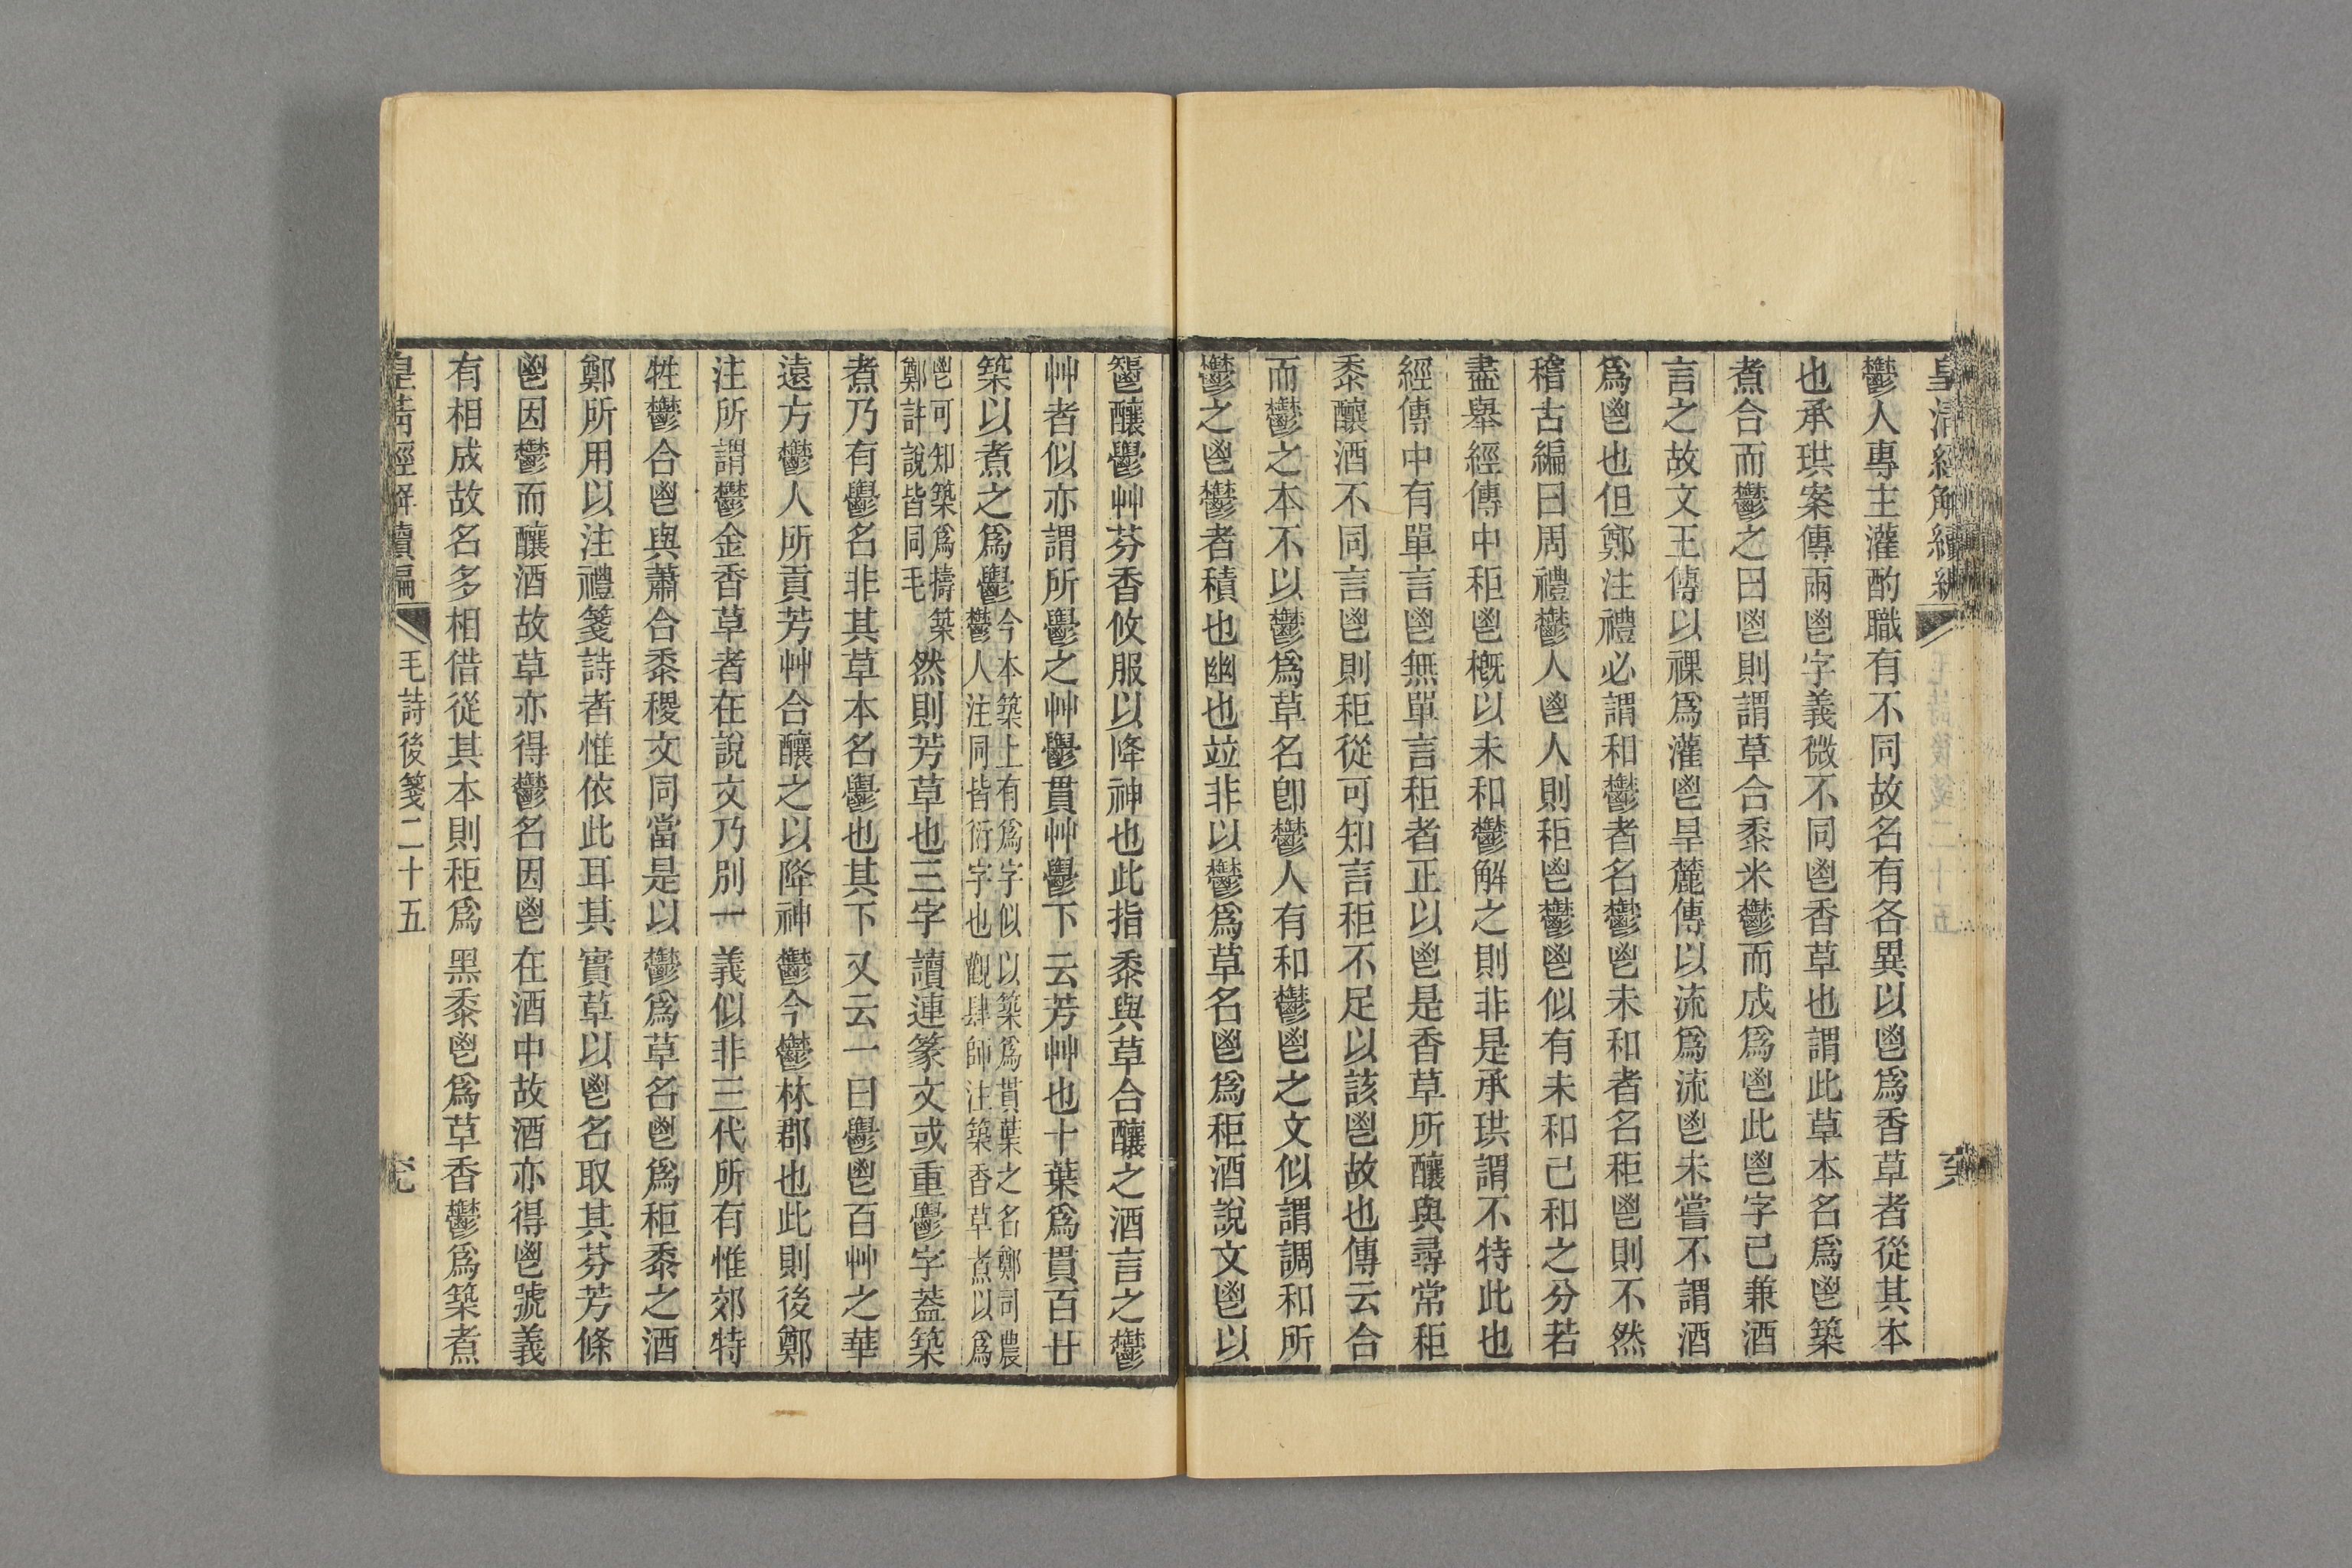 皇清經解續編
鬱人專主灌酌職有不同故名有各異以鬯爲香草者從其本
也承珙案傳兩鬯字義微不同鬯香草也謂此草本名爲鬯築
煮合而鬱之曰鬯則謂草合黍米鬱而成爲鬯此鬯字已兼酒
言之故文王傳以祼爲灌鬯旱麓傳以流爲流鬯未嘗不謂酒
爲鬯也但鄭注禮必謂和鬱者名鬱鬯未和者名秬鬯則不然
稽古編曰周禮鬱人鬯人則秬鬯鬱鬯似有未和己和之分若
盡舉經傳中秬鬯槪以未和鬱解之則非是承珙謂不特此也
經傳中有單言鬯無單言秬者正以鬯是香草所釀與尋常秬
黍釀酒不同言鬯則秬從可知言秬不足以該鬯故也傳云合
而鬱之本不以鬱爲草名卽鬱人有和鬱鬯之文似謂調和所
鬱之鬯鬱者積也幽也竝非以鬱爲草名鬯爲秬酒說文鬯以
釀鬱艸芬香攸服以降神也此指黍與草合釀之酒言之鬱
艸者似亦謂所鬱之艸鬱貫艸鬱下云芳艸也十葉爲貫百廿
築以煮之爲鬱今本築上有爲字似以築爲貫葉之名鄭司農
鬱人注同皆衍字也觀肆師注築香草煮以爲
鬯可知築爲擣築
鄭許說皆同毛然則芳草也三字讀連篆文或重鬱字葢築
煮乃有鬱名非其草本名鬱也其下又云一曰鬱鬯百艸之華
遠方鬱人所貢芳艸合釀之以降神鬱今鬱林郡也此則後鄭
注所謂鬱金香草者在說文乃別一義似非三代所有惟郊特
牲鬱合鬯與蕭合黍稷文同當是以鬱爲草名鬯爲秬黍之酒
鄭所用以注禮箋詩者惟依此耳其實草以鬯名取其芬芳條
鬯因鬱而釀酒故草亦得鬱名因鬯在酒中故酒亦得鬯號義
有相成故名多相借從其本則秬爲黑黍鬯爲草香鬱爲築煮
皇淸經解續編 毛詩後箋二十五